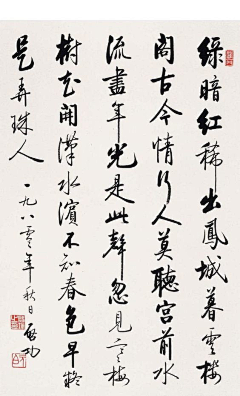 綠暗紅稀出鳳城暮雲樓
閣古今情行人莫聽宮前水
流盡年光是此聲忽見寒梅
樹花開漢水濱不知春色早疑
是弄珠人 一九八零年秋日 啟功